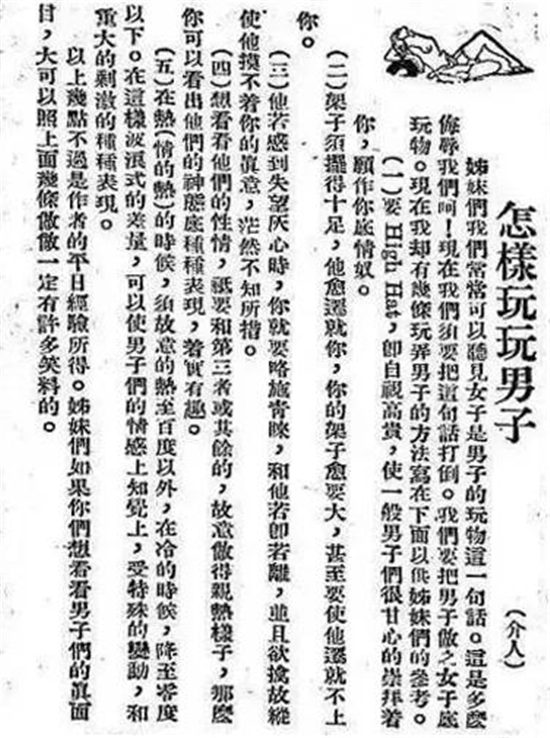 怎樣玩玩男子
(介人)
姊妹們我們常常可以聽見女子是男子的玩物這一句話。這是多麽
侮辱我們呵!現在我們須要把這句話打倒。我們要把男子做之女子底
玩物。現在我却有幾條玩弄男子的方法寫在下面以供姊妹們的參考。
(一)要High Hat,卽自視高貴,使一般男子們很甘心的崇拜着
你,願作你底情奴。
(二)架子須擺得十足,他愈遷就你,你的架子愈要大,甚至要使他遷就不上
你。
(三)他若感到失望灰心時,你就要略施靑睞,和他若卽若離,並且欲擒故縱
使他摸不着你的眞意,茫然不知所措。
(四)想看看他們的性情,祇要和第三者或其餘的,故意做得親熱樣子,那麽
你可以看出他們的神態底種種表現,着實有趣。
(五)在熱(情的熱)的時候,須故意的熱至百度以外,在冷的時候,降至零度
以下。在這樣波浪式的差量,可以使男子們的情感上知覺上,受特殊的變動,和
重大的剌激的種種表現。
以上幾點不過是作者的平日經驗所得。姊妹們如果你們想看看男子們的眞面
目,大可以照上面幾條做做一定有許多笑料的。